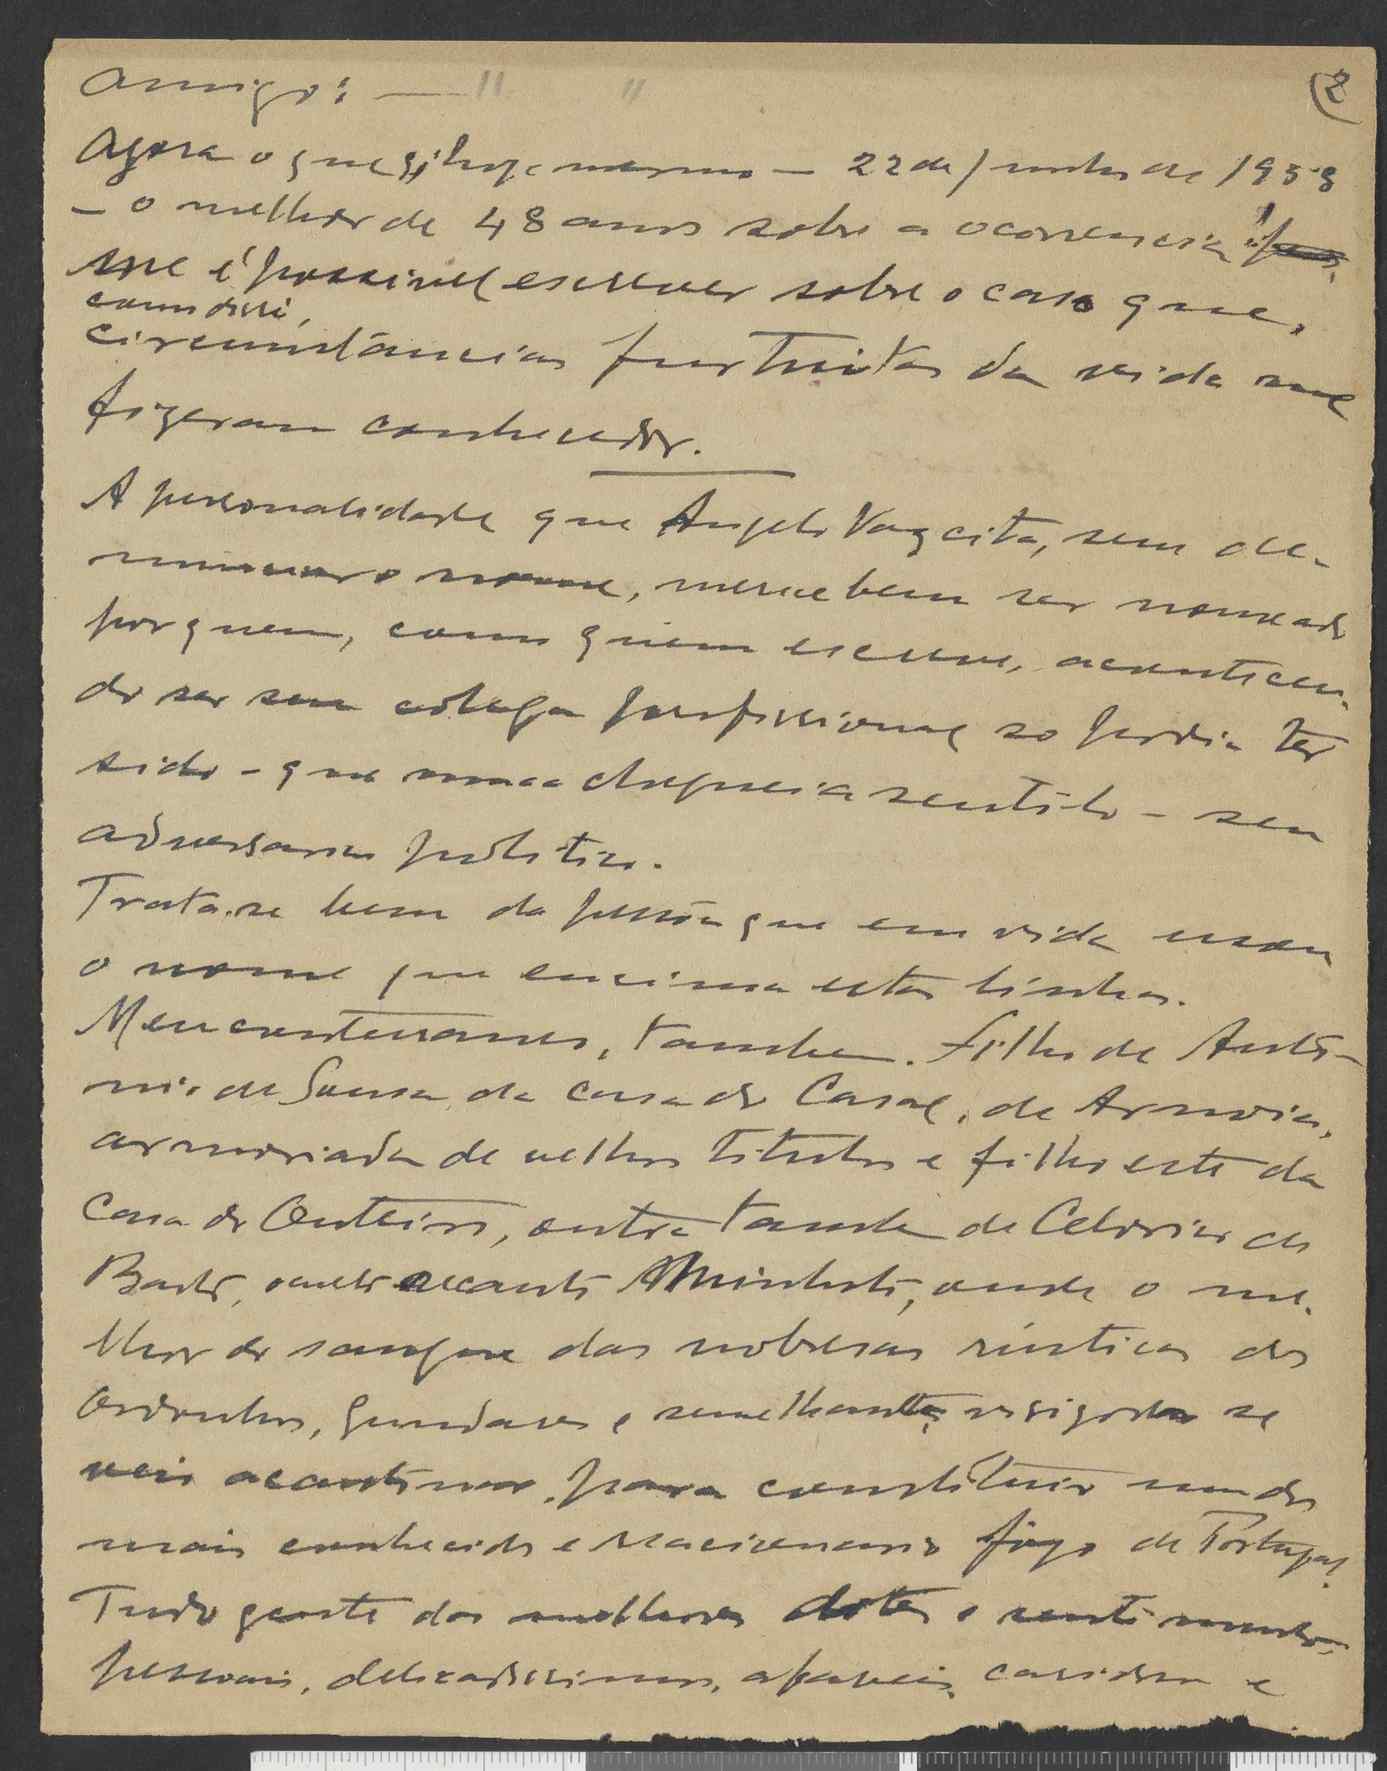 (2
Amigo: — " "
Agora o que hoje mesmo — 22 de Junho de 1953
— o melhor de 48 anos sobre a ocorrencia
me é possivel escrever sobre o caso que,
como disse,
circunstâncias furtuitas da vida me
fizeram conhecedor.
A personalidade que Angelo Vaz cita, sem de-
nunciar o nome, merece bem ser nomeado
por quem, como quem escreve, acontecen-
do ser seu colega profissional só podia ter
sido - que nunca chegueia sentilo - seu
adversario politico.
Trata-se bem da pessôa que em vida usou
o nome que encima estas linhas.
Meu conterraneo, tambem. Filho de Antó-
nio de Sousa, da casa do Casal, de Arnoia,
armoriada de velhos titulos e filho este da
Casa do Outeiro, outra tambem de Celorico de
Basto, recanto Minhoto, onde o me-
lhor do sangue das nobresas rústicas dos
Ordonhos, Gundares e semelhantes visigodos se
veio acantonar, para constituir um dos
mais conhecido e reacionario fôgo de Portugal.
Tudo gente dos melhores dotes e sentimentos
pessoais, delicadissimos, afaveis, caridosa e